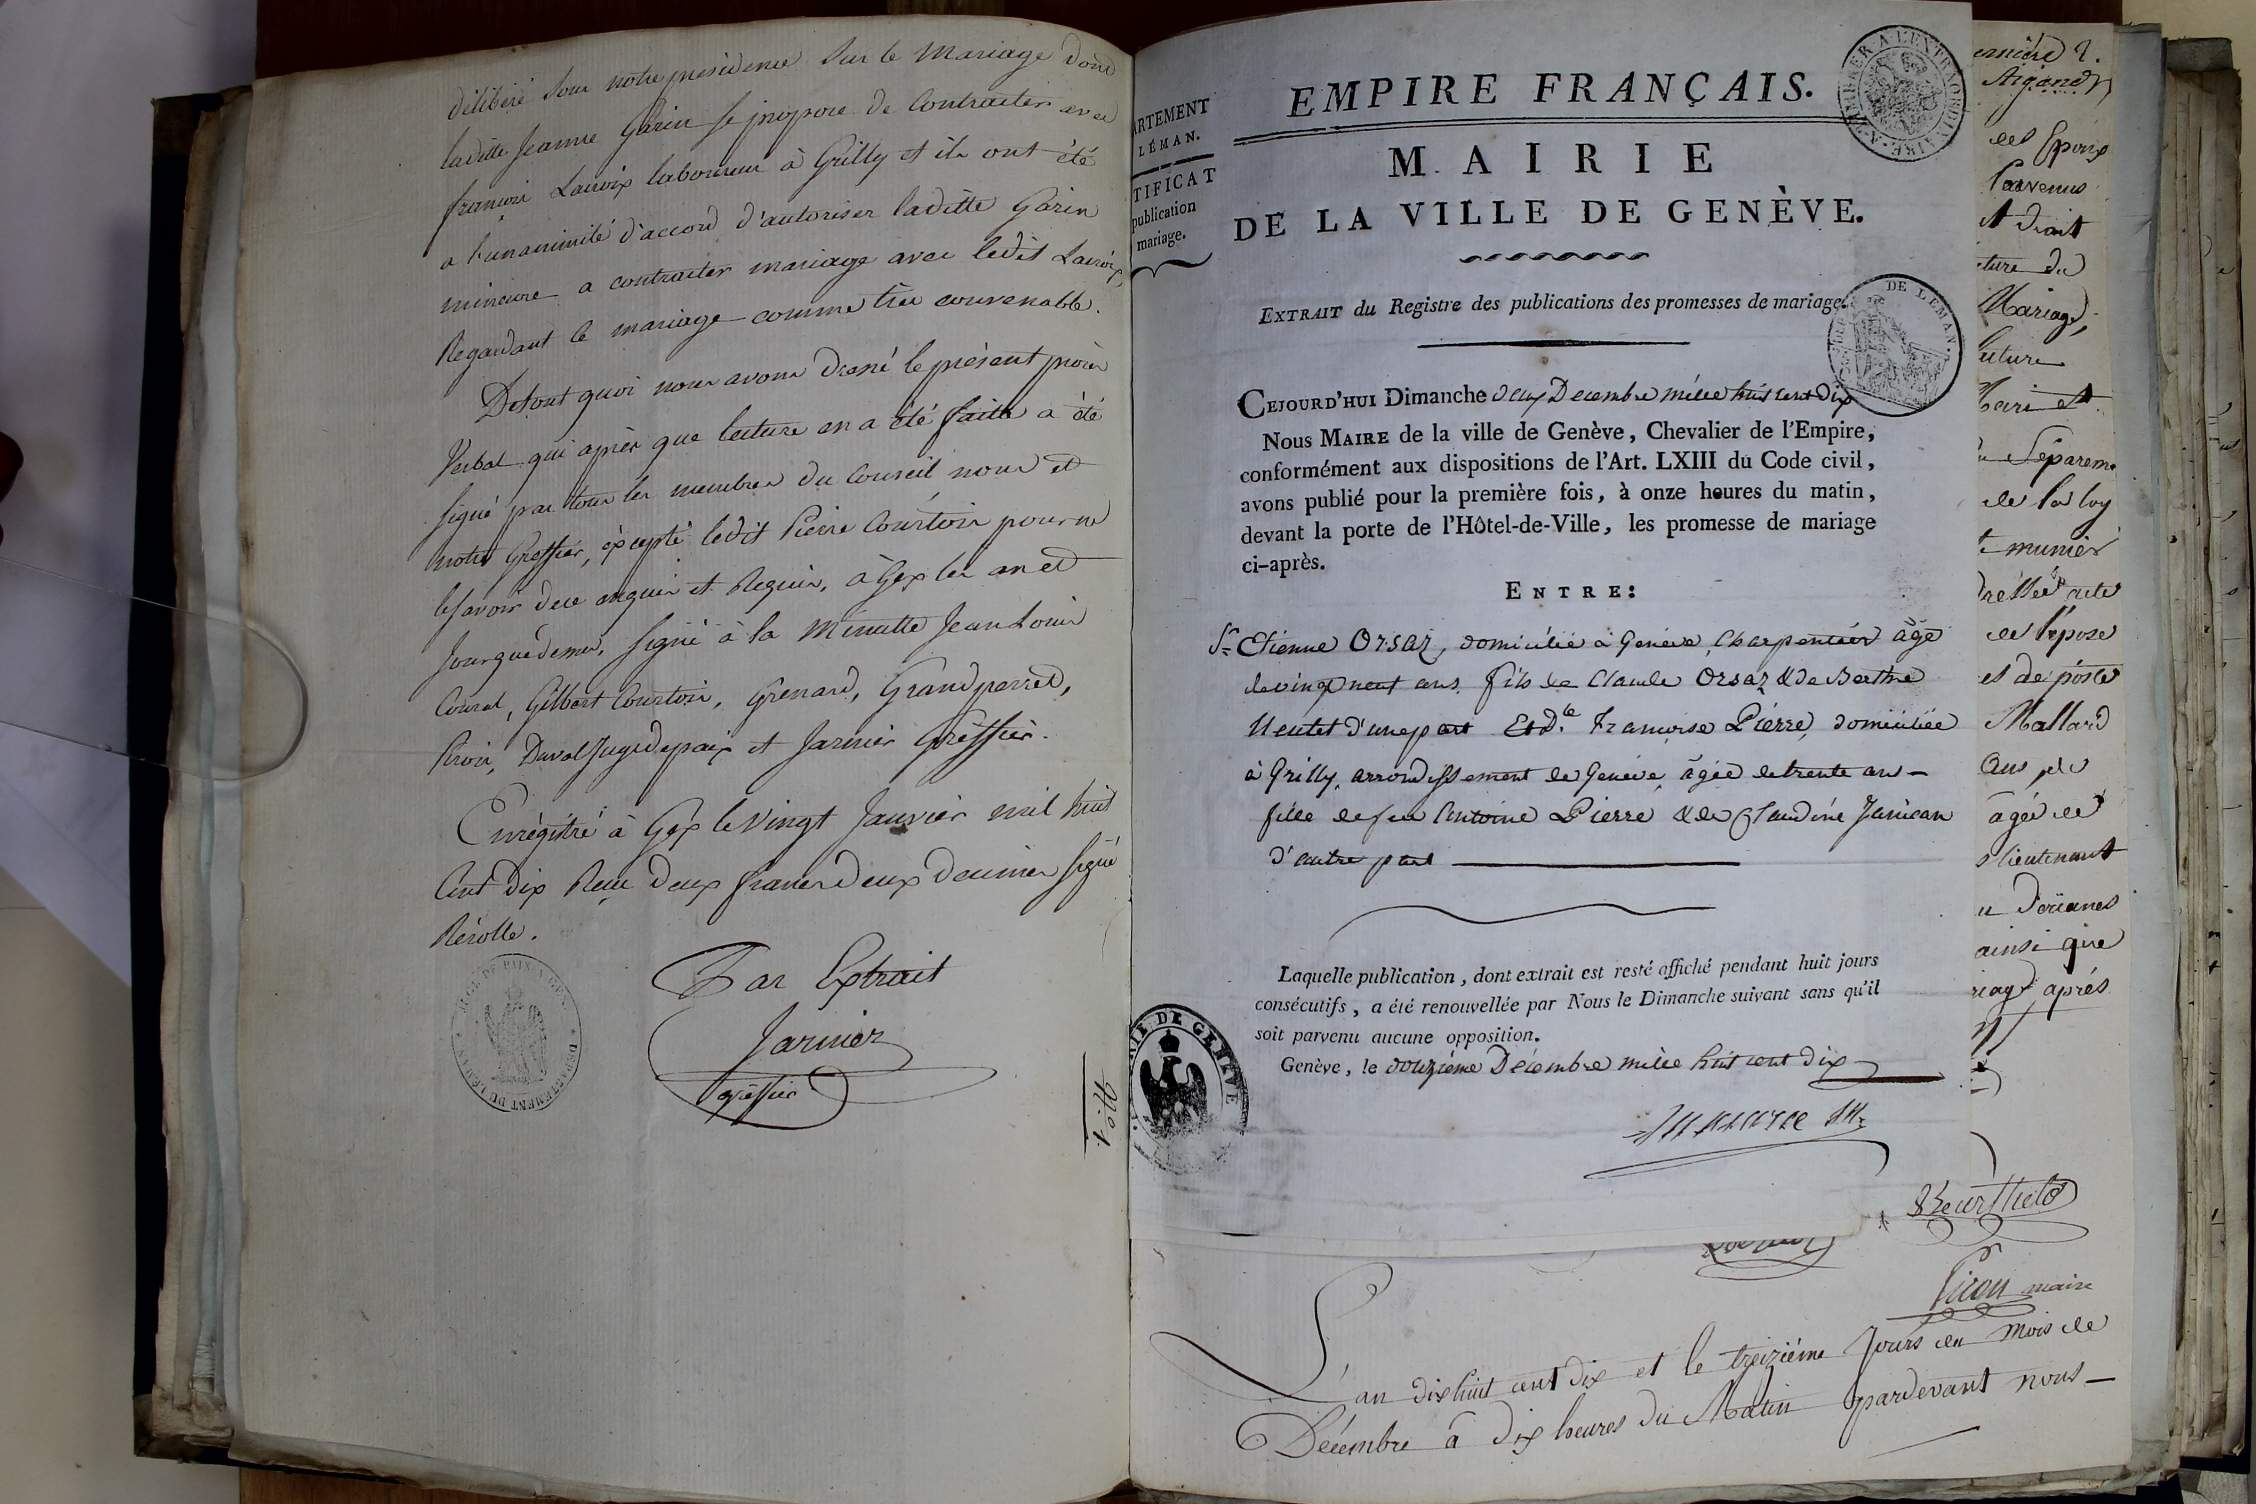 délibéré sous notre présidence sur le mariage dont
ladite Jeanne Garin se propose de Contracter avec
françois Lacroix laboureur à Grilly et ils ont été
a l'unanimité d'accord d'autoriser laditte Garin
mineure a contracter mariage avec ledit Lacroix,
Regardant le mariage comme très convenable.
De tout quoi nous avons dressé le présent procès
Verbal qui après que lecture en a été faite a été
signé par tous les membres du Conseil nous et
notre Greffier, excepté ledit Pierre Courtois pour ne
le savoir de ce enquis et Requis, à Gex les an et
jour que dessus, signé à la Minutte Jean Louis
Gilbert Courtois, Grenard, Grandperret,
Duval Juge de paix et Jarnier Greffier.
Enrégistré à Gex le vingt Janvier mil huit
Cent dix Reçu deux francs deux décimes signé
Rérolle.
JUGE DE PAIX
DEPARTEMENT DU LEMAN
Par Extrait
Jarnier
greffier
N° 1
ARTEMENT
LÉMAN.
TIFICAT
publication
mariage.
EMPIRE FRANÇAIS.
MAIRIE
DE LA VILLE DE GENÈVE.
EXTRAIT du Registre des publications des promesses de mariage.
DE LEMAN
CEJOURD'HUI Dimanche deux Decembre mille huit cent dix
Nous MAIRE de la ville de Genève, Chevalier de l'Empire,
conformément aux dispositions de l'Art. LXIII du Code civil,
avons publié pour la première fois, à onze heures du matin,
devant la porte de l'Hôtel-de-Ville, les promesse de mariage
ci-après.
ENTRE:
Sr. Etienne Orsaz, domicilié à Genève, Charpentier âgé
de vingt neuf ans, fils de Claude Orsaz & de Berthe
Neutet d'une part Et Dlle. Françoise Pierre, domiciliée
à Grilly, arrondissement de Genève, âgée de trente ans
fille de feu Antoine Pierre & de Claudine Janican
d'autre part
Laquelle publication, dont extrait est resté affiché pendant huit jours
consécutifs, a été renouvellée par Nous le Dimanche suivant sans qu'il
soit parvenu aucune opposition.
Genève, le douzième Décembre mille huit cent dix
MAIRIE DE GENEVE
ernière
des Epoux
Parvenus
et droit
cture du
Mariage,
uture
Mari et
Séparem
de la loy
munier
acte
de l'épose
Mallard
ans, de
âgée de
lieutenant
Doüanes
ainsi que
riage après
maire
L'an dixhuit cent dix et le treizième Jours du mois de
Décembre à dix heures du Matin pardevant nous